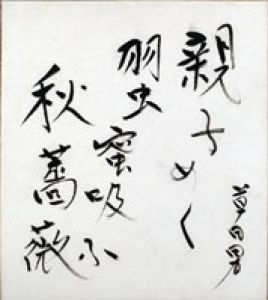 親子めく
羽虫蜜吸ふ
秋薔薇
草田男